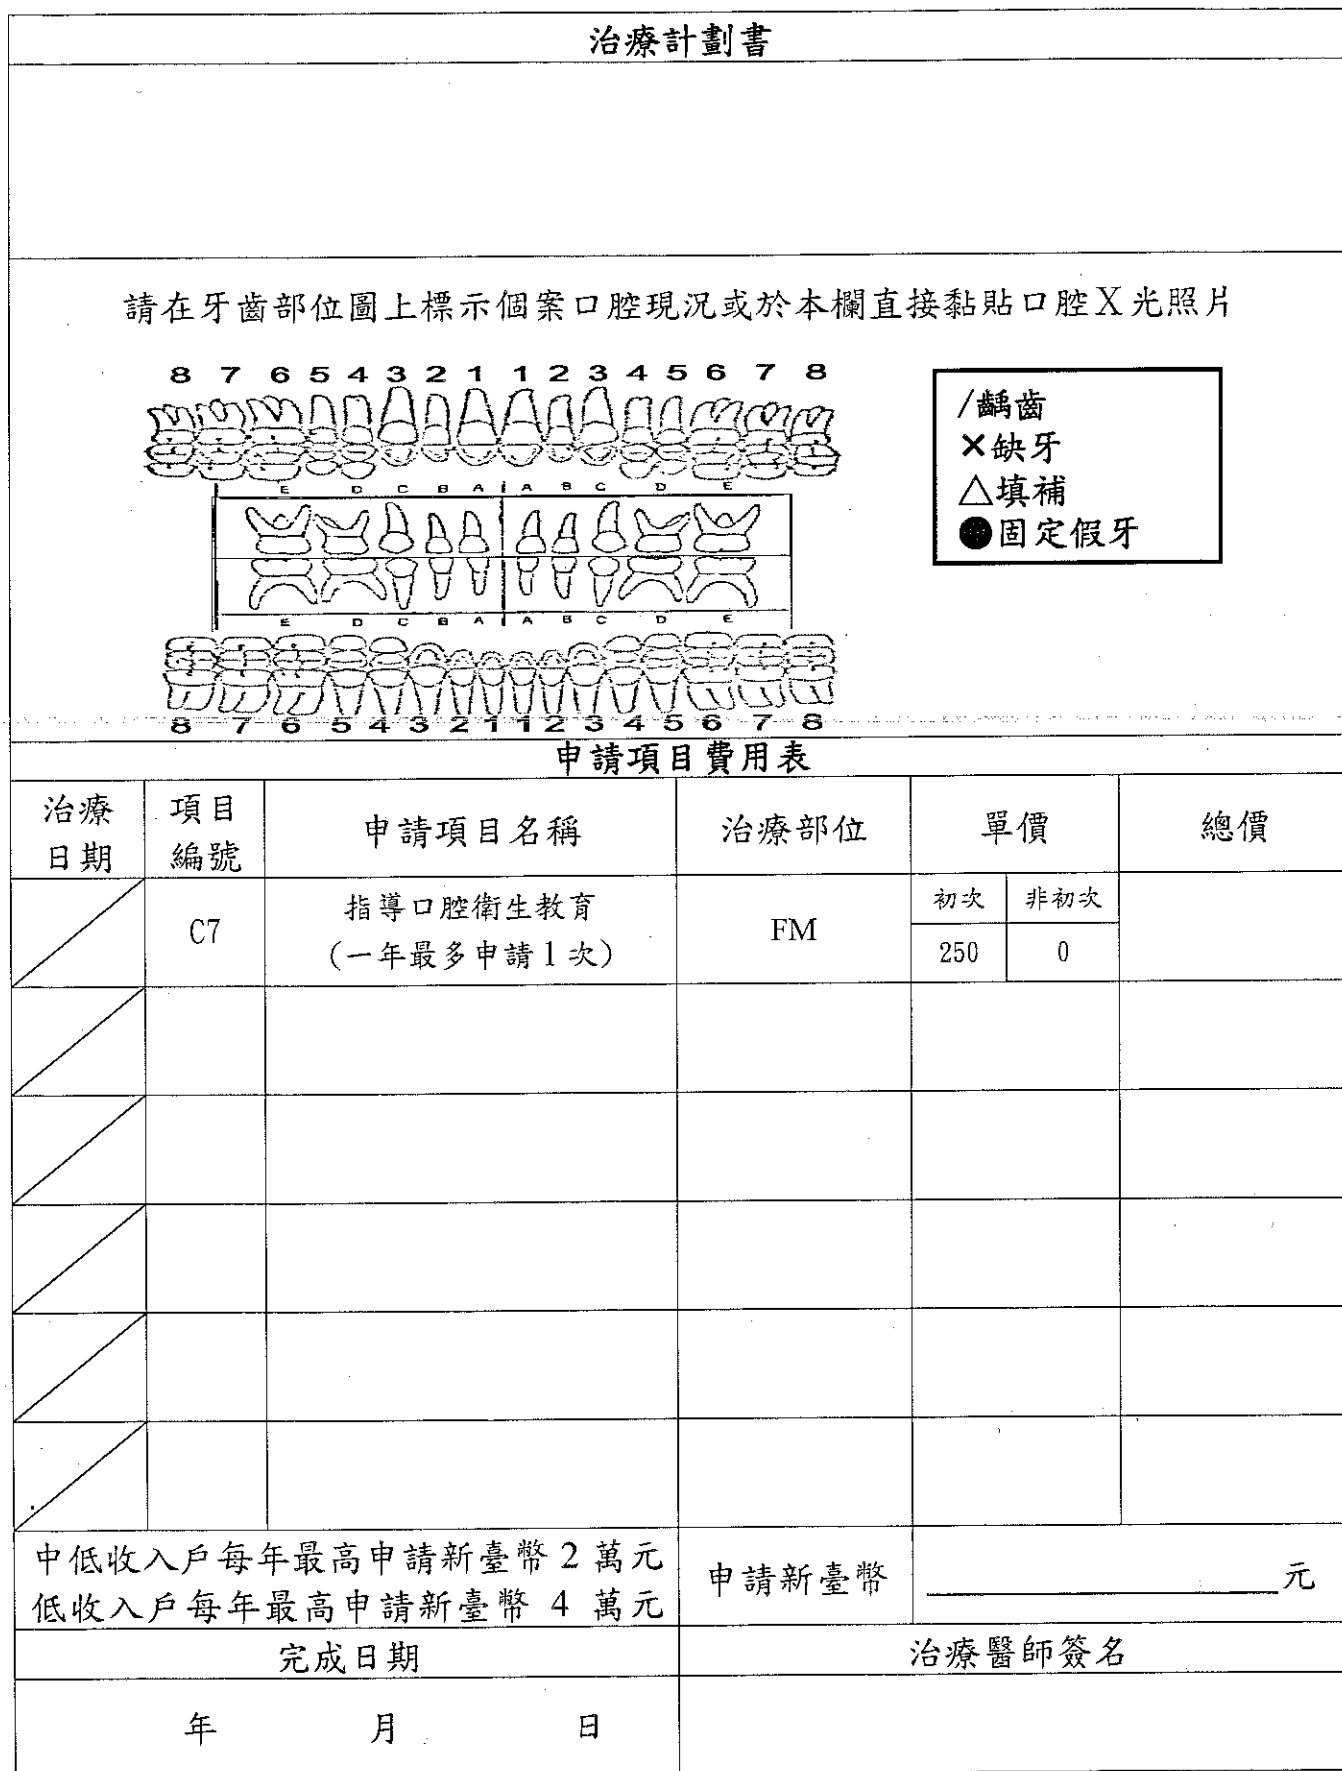 治療計劃書
請在牙齒部位圖上標示個案口腔現況或於本欄直接黏貼口腔X光照片
8 7 6 5 4 3 2 1 1 2 3 4 5 6 7 8
E D C B A A B C D E
E D C B A A B C D E
8 7 6 5 4 3 2 1 1 2 3 4 5 6 7 8
/齲齒
×缺牙
△填補
●固定假牙
申請項目費用表
治療日期 項目編號 申請項目名稱 治療部位 單價 總價
C7 指導口腔衛生教育 FM 初次 非初次
(一年最多申請1次) 250 0
中低收入戶每年最高申請新臺幣 2 萬元
低收入戶每年最高申請新臺幣 4 萬元
申請新臺幣 元
完成日期 治療醫師簽名
年 月 日